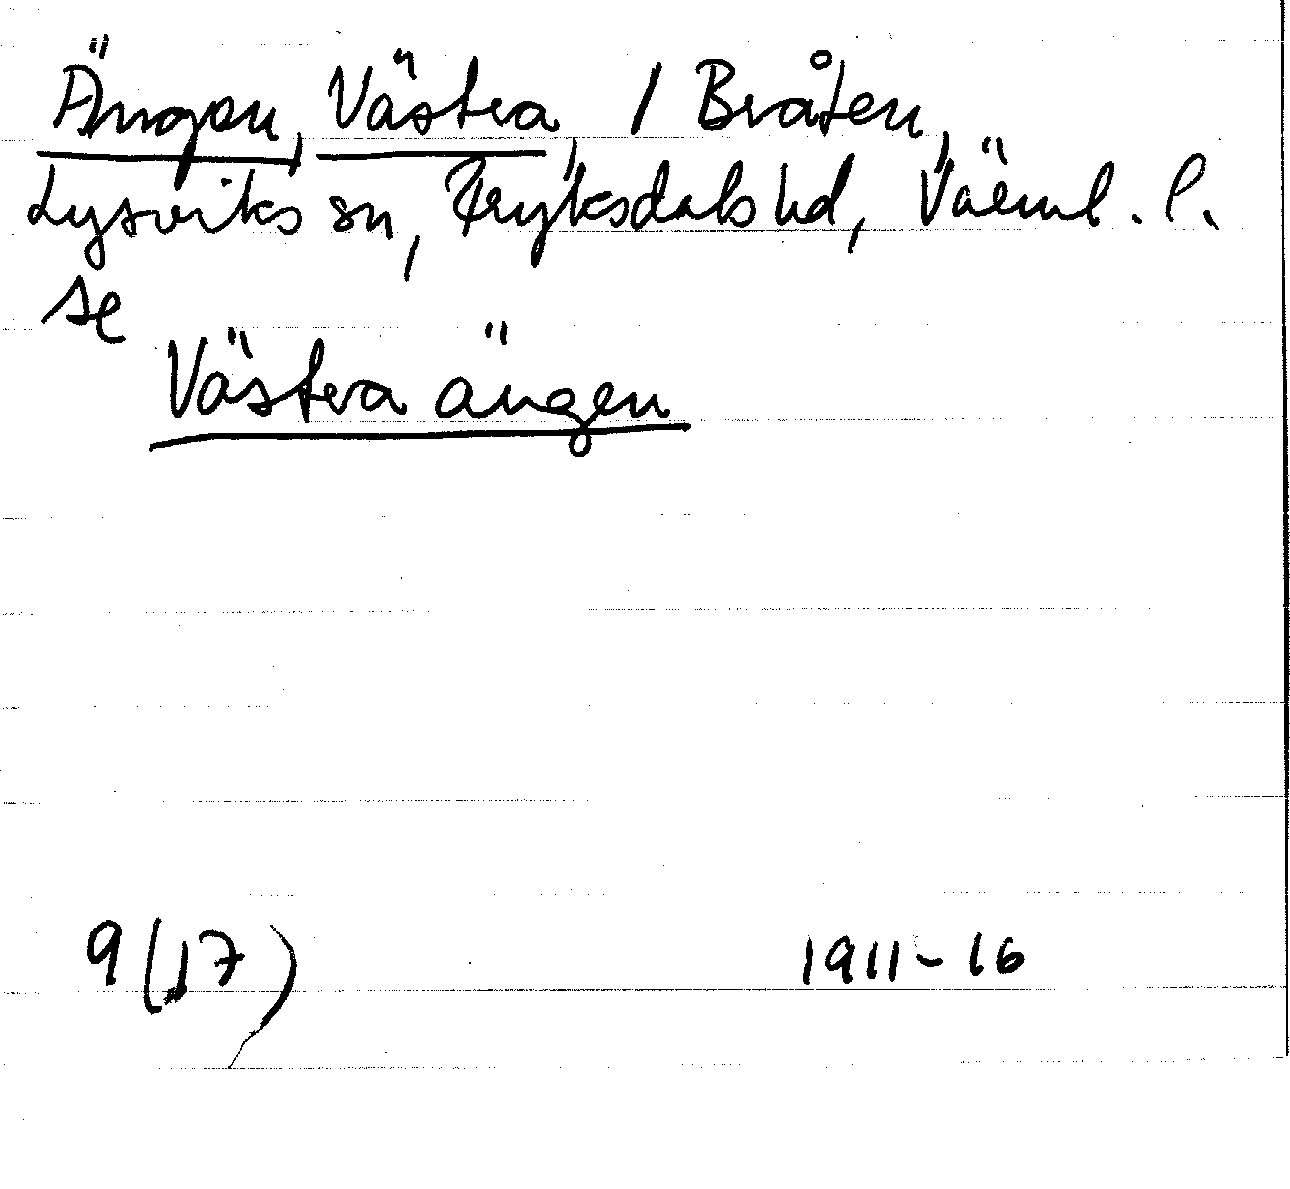 Ängen, Västra, / Bråten,
Lysviks sn, Fryksdals hd, Värml. l.
se
Västra ängen
9 (17) 1911-16